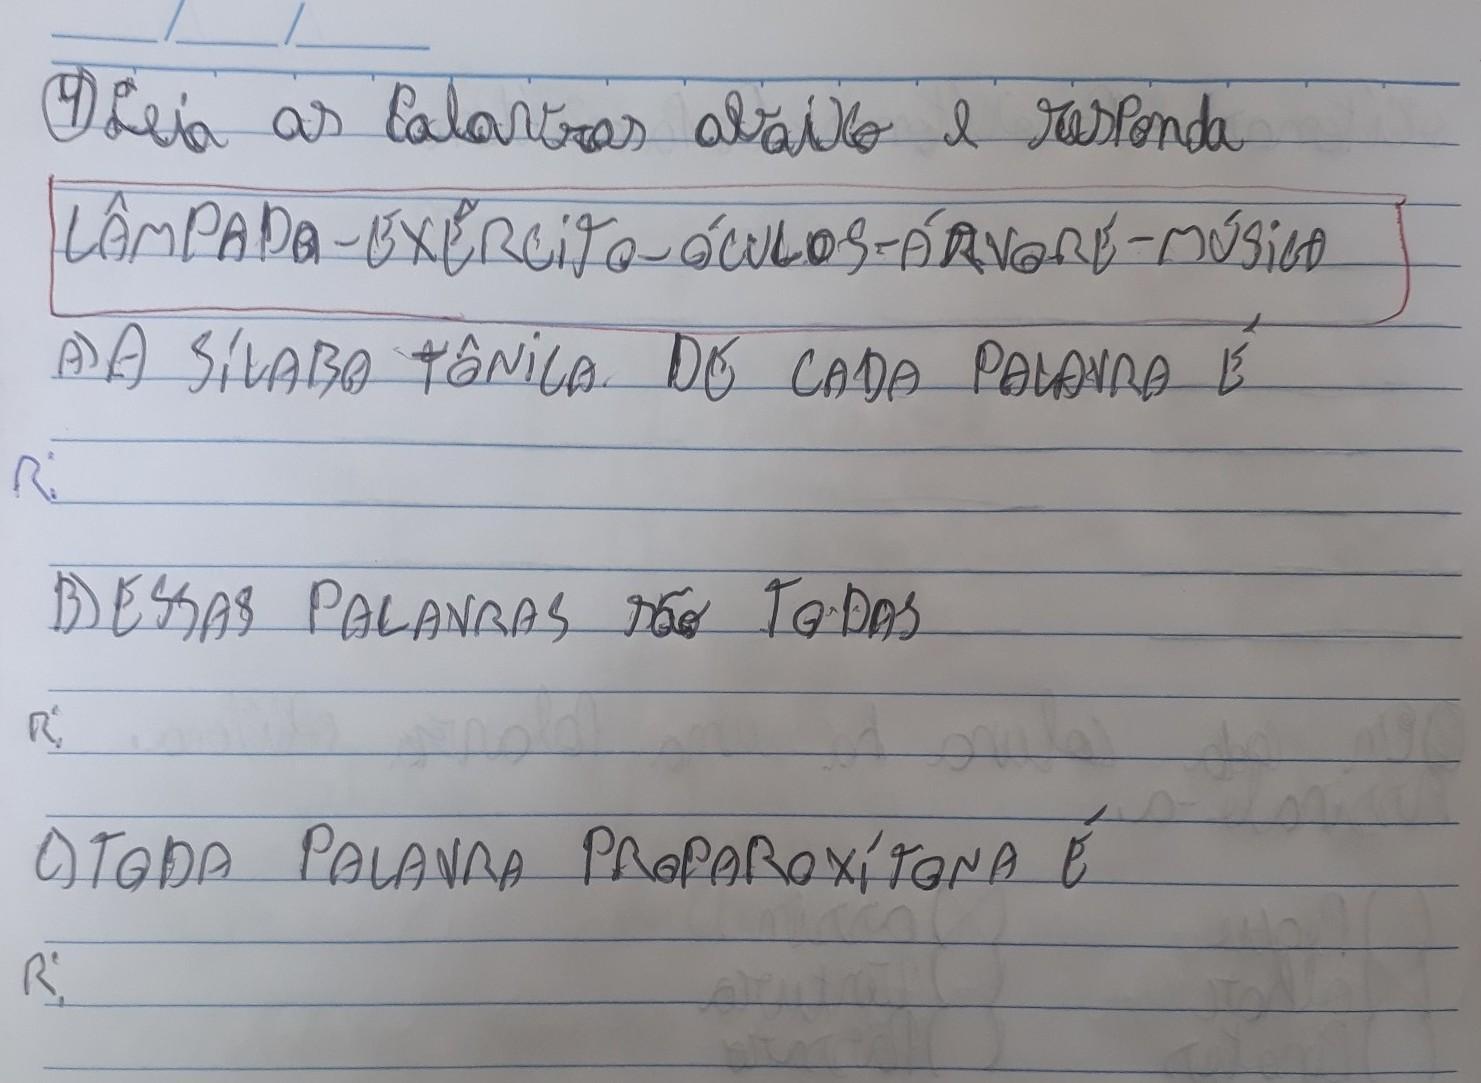 4) Leia as Palavras abaixo e responda
LÂMPADA - EXÉRCITO - ÓCULOS - ÁRVORE - MÚSICA
A) A SÍLABA TÔNICA. DE CADA PALAVRA É
R:
B) ESSAS PALAVRAS são TODAS
R:
C) TODA PALAVRA PROPAROXÍTONA É
R: